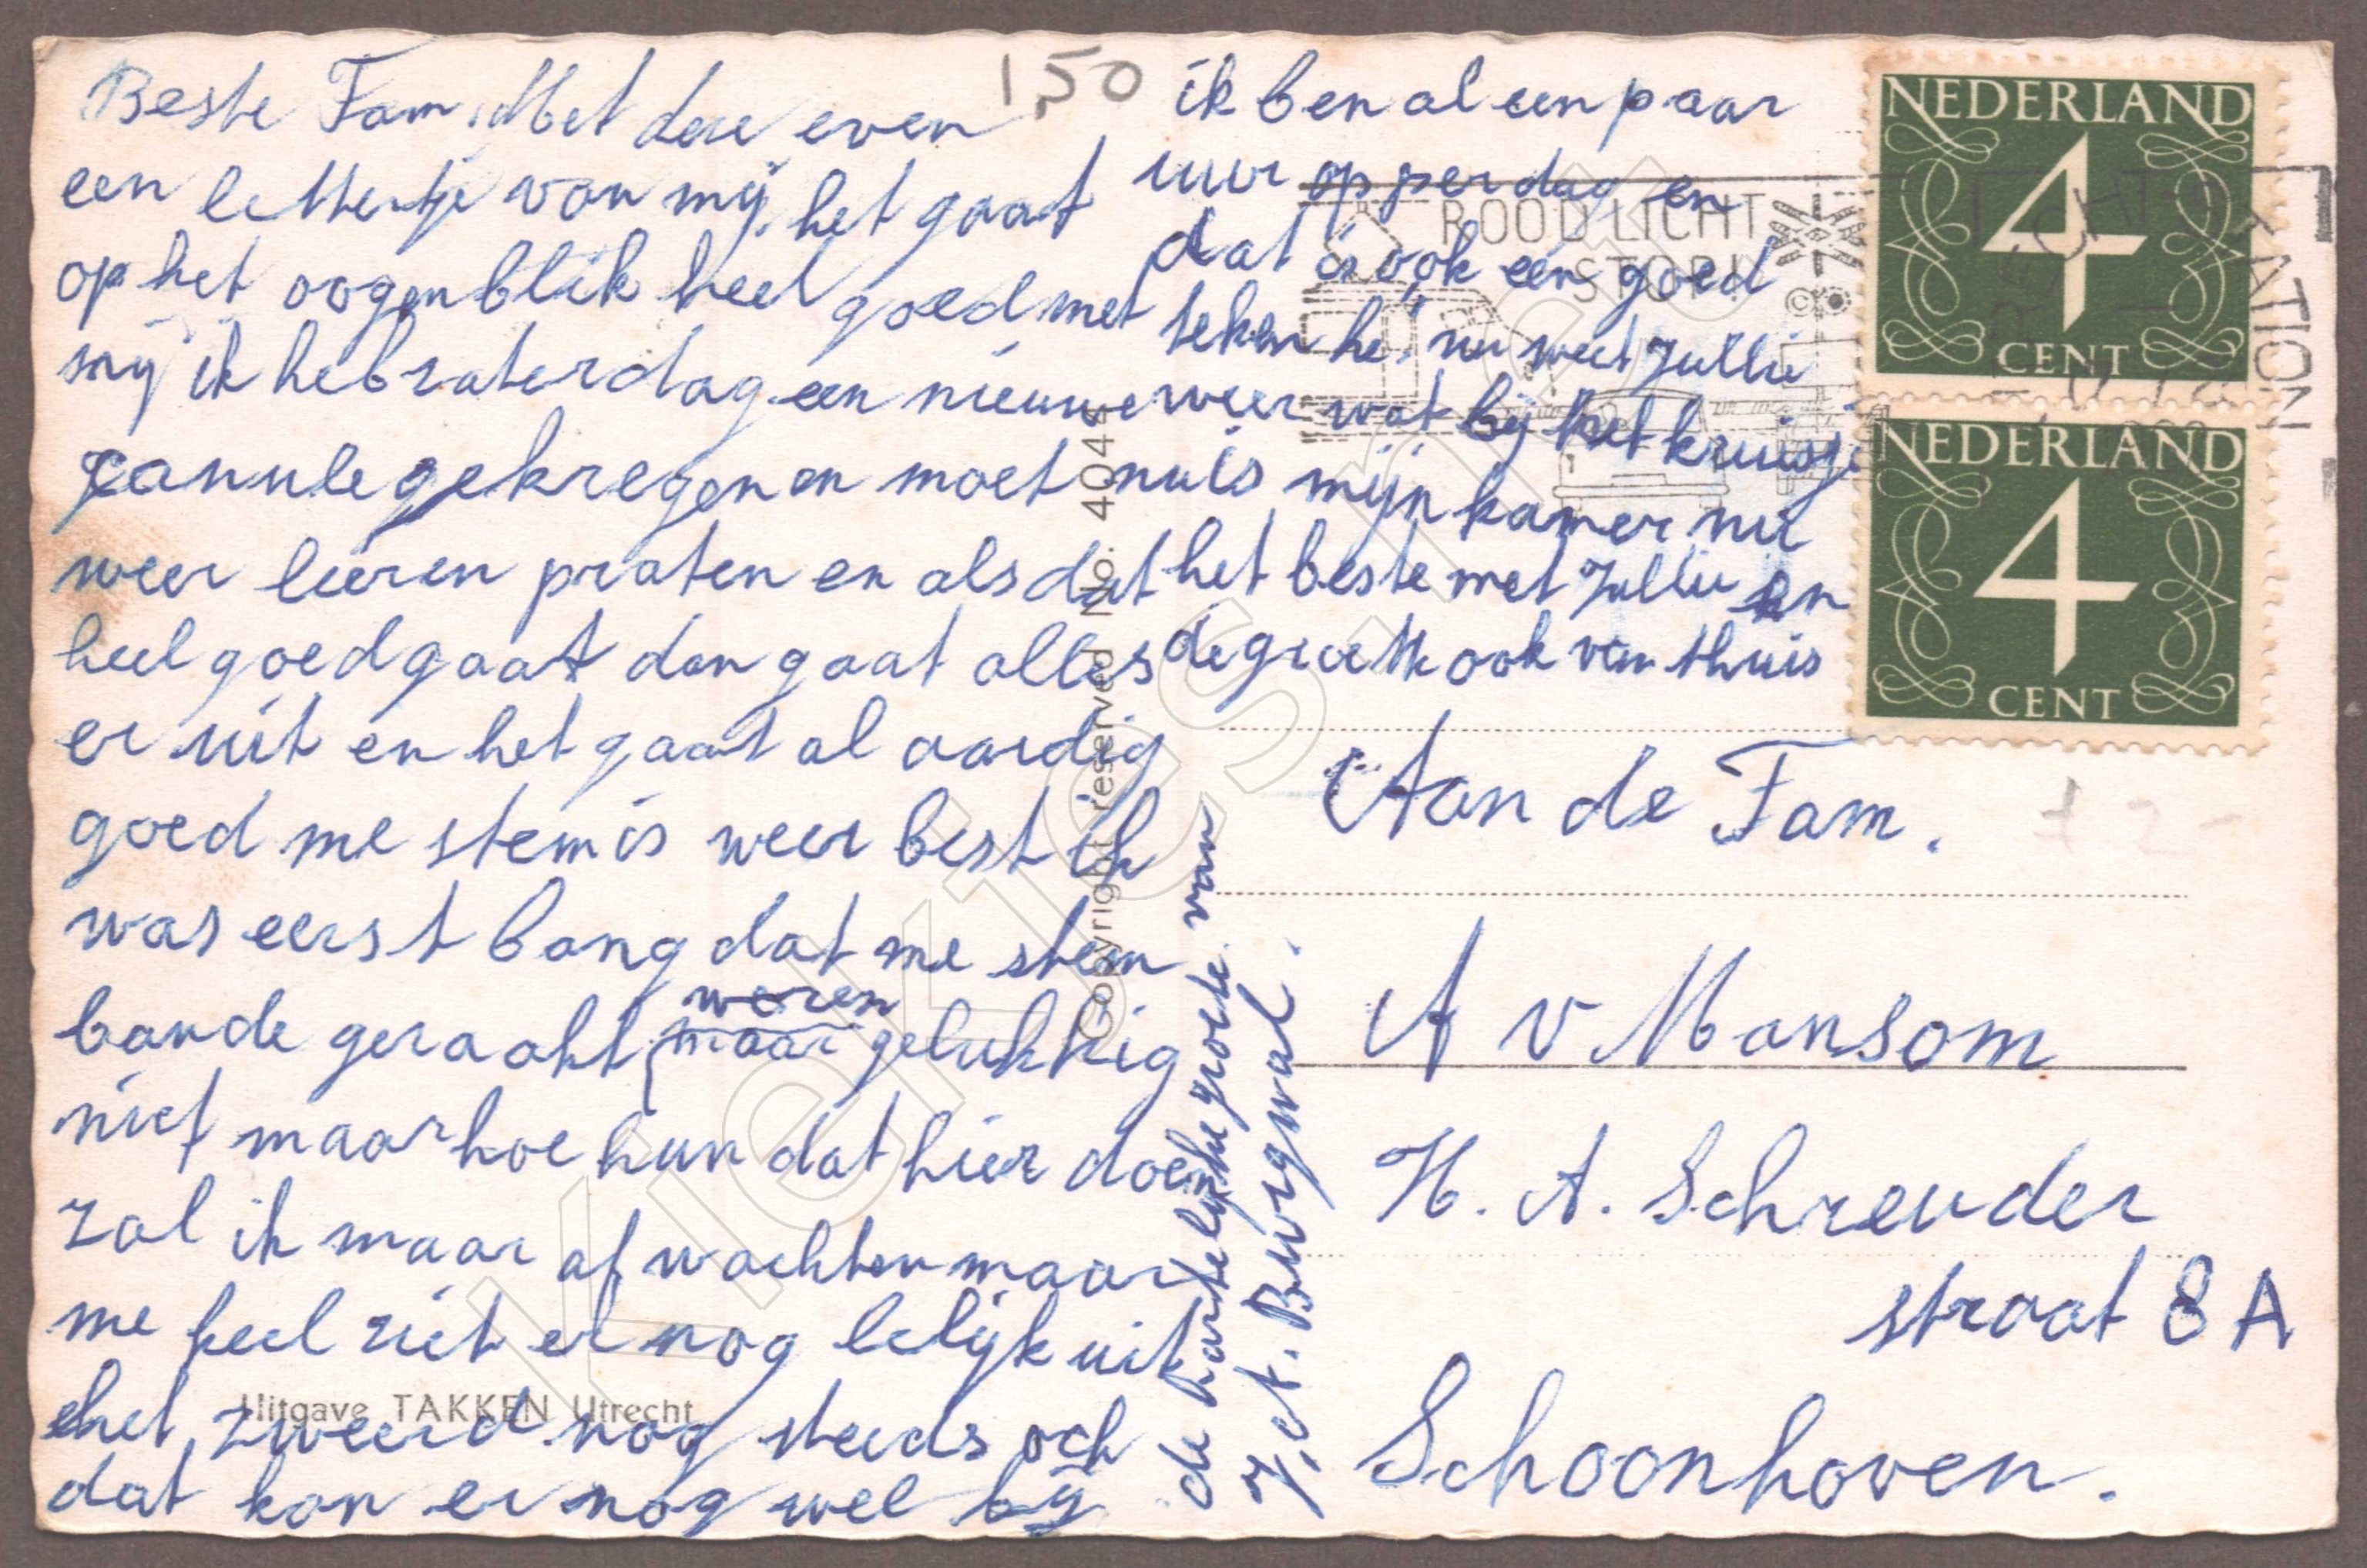 1,50
Beste Fam. Met deze even
een lettertje van mij, het gaat
op het oogenblik heel goed met
mij ik heb zaterdag een nieuwe
canule gekregen en moet nu
weer leeren praten en als dat
heel goed gaat dan gaat alles
er uit en het gaat al aardig
goed me stem is weer best ik
was eerst bang dat me stem
weren
bande geraakt maar gelukkig
niet maar hoe hun dat hier doen
zal ik maar af wachten maar
me keel ziet er nog lelijk uit
het zweerd nog steeds och
dat kan er nog wel bij
ik ben al een paar
uur op per dag en
dat is ook een goed
teken hé! nu weet jullie
weer wat bij het kruisje
is mijn kamer nu
het beste met jullie en
de groette ook van thuis
de hartelijke groete van
J, et. Burgwal.
Aan de Fam.
A v Mansom
H. A. Schreuder
straat 8 A
Schoonhoven.
NEDERLAND
4
CENT
NEDERLAND
4
CENT
ROOD LICHT
STOP!
Copyright reserved No. 4044
Uitgave TAKKEN Utrecht
Kiekjes.net